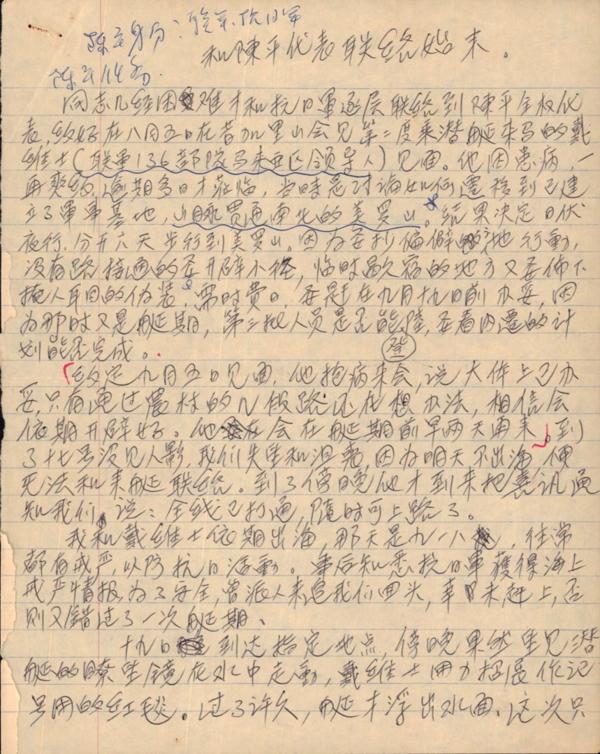 陈平身分：
陈平任务
和陳平代表联络始末。
同志几经困难才和抗日軍逐层联络到陳平全权代
表,約好在八月五日在昔加里山会見第二度乘潜艇来马的戴
維士(联軍136部队马来亚区领导人)见面。他因患病,一
再爽約,逾期多日才莅临,当时是讨论如何遷移到已建
立了軍事基地,山脉貫通南北的美罗山。结果决定日伏
夜行,分开六天步行到美罗山。因为要抄偏僻的地行動,
没有路接通的要开辟小径,临时歇宿的地方又要佈下
掩人耳目的伪装,需时費日,要是在九月十九日前办妥,因
为那时又是艇期,第三批人员是否能登陸,要看内遷的计
划能否完成。
約定九月五日见面,他抱病来会,说大件上已办
妥,只有通过農村的几段路还在想办法,相信会
依期开辟好。他会在艇期前早两天再来。到
了十七号没见人影,我们失望和混乱,因为明天不出海,便
无法和来艇联络。到了傍晚他才到来把喜讯通
知我们,说:全线已打通,随时可上路了。
我和戴維士依期出海,那天是九一八,往常
都有戒严,以防抗日活動。事后知悉抗日軍獲得海上
戒严情报,为了安全,曾派人来追我们回头,幸未赶上,否
则又错过了一次艇期。
十九日到达指定地点,傍晚果然望见潜
艇的瞭望镜在水中走動,戴維士用力招展作记
号用的红毯。过了许久,艇才浮出水面。这次只